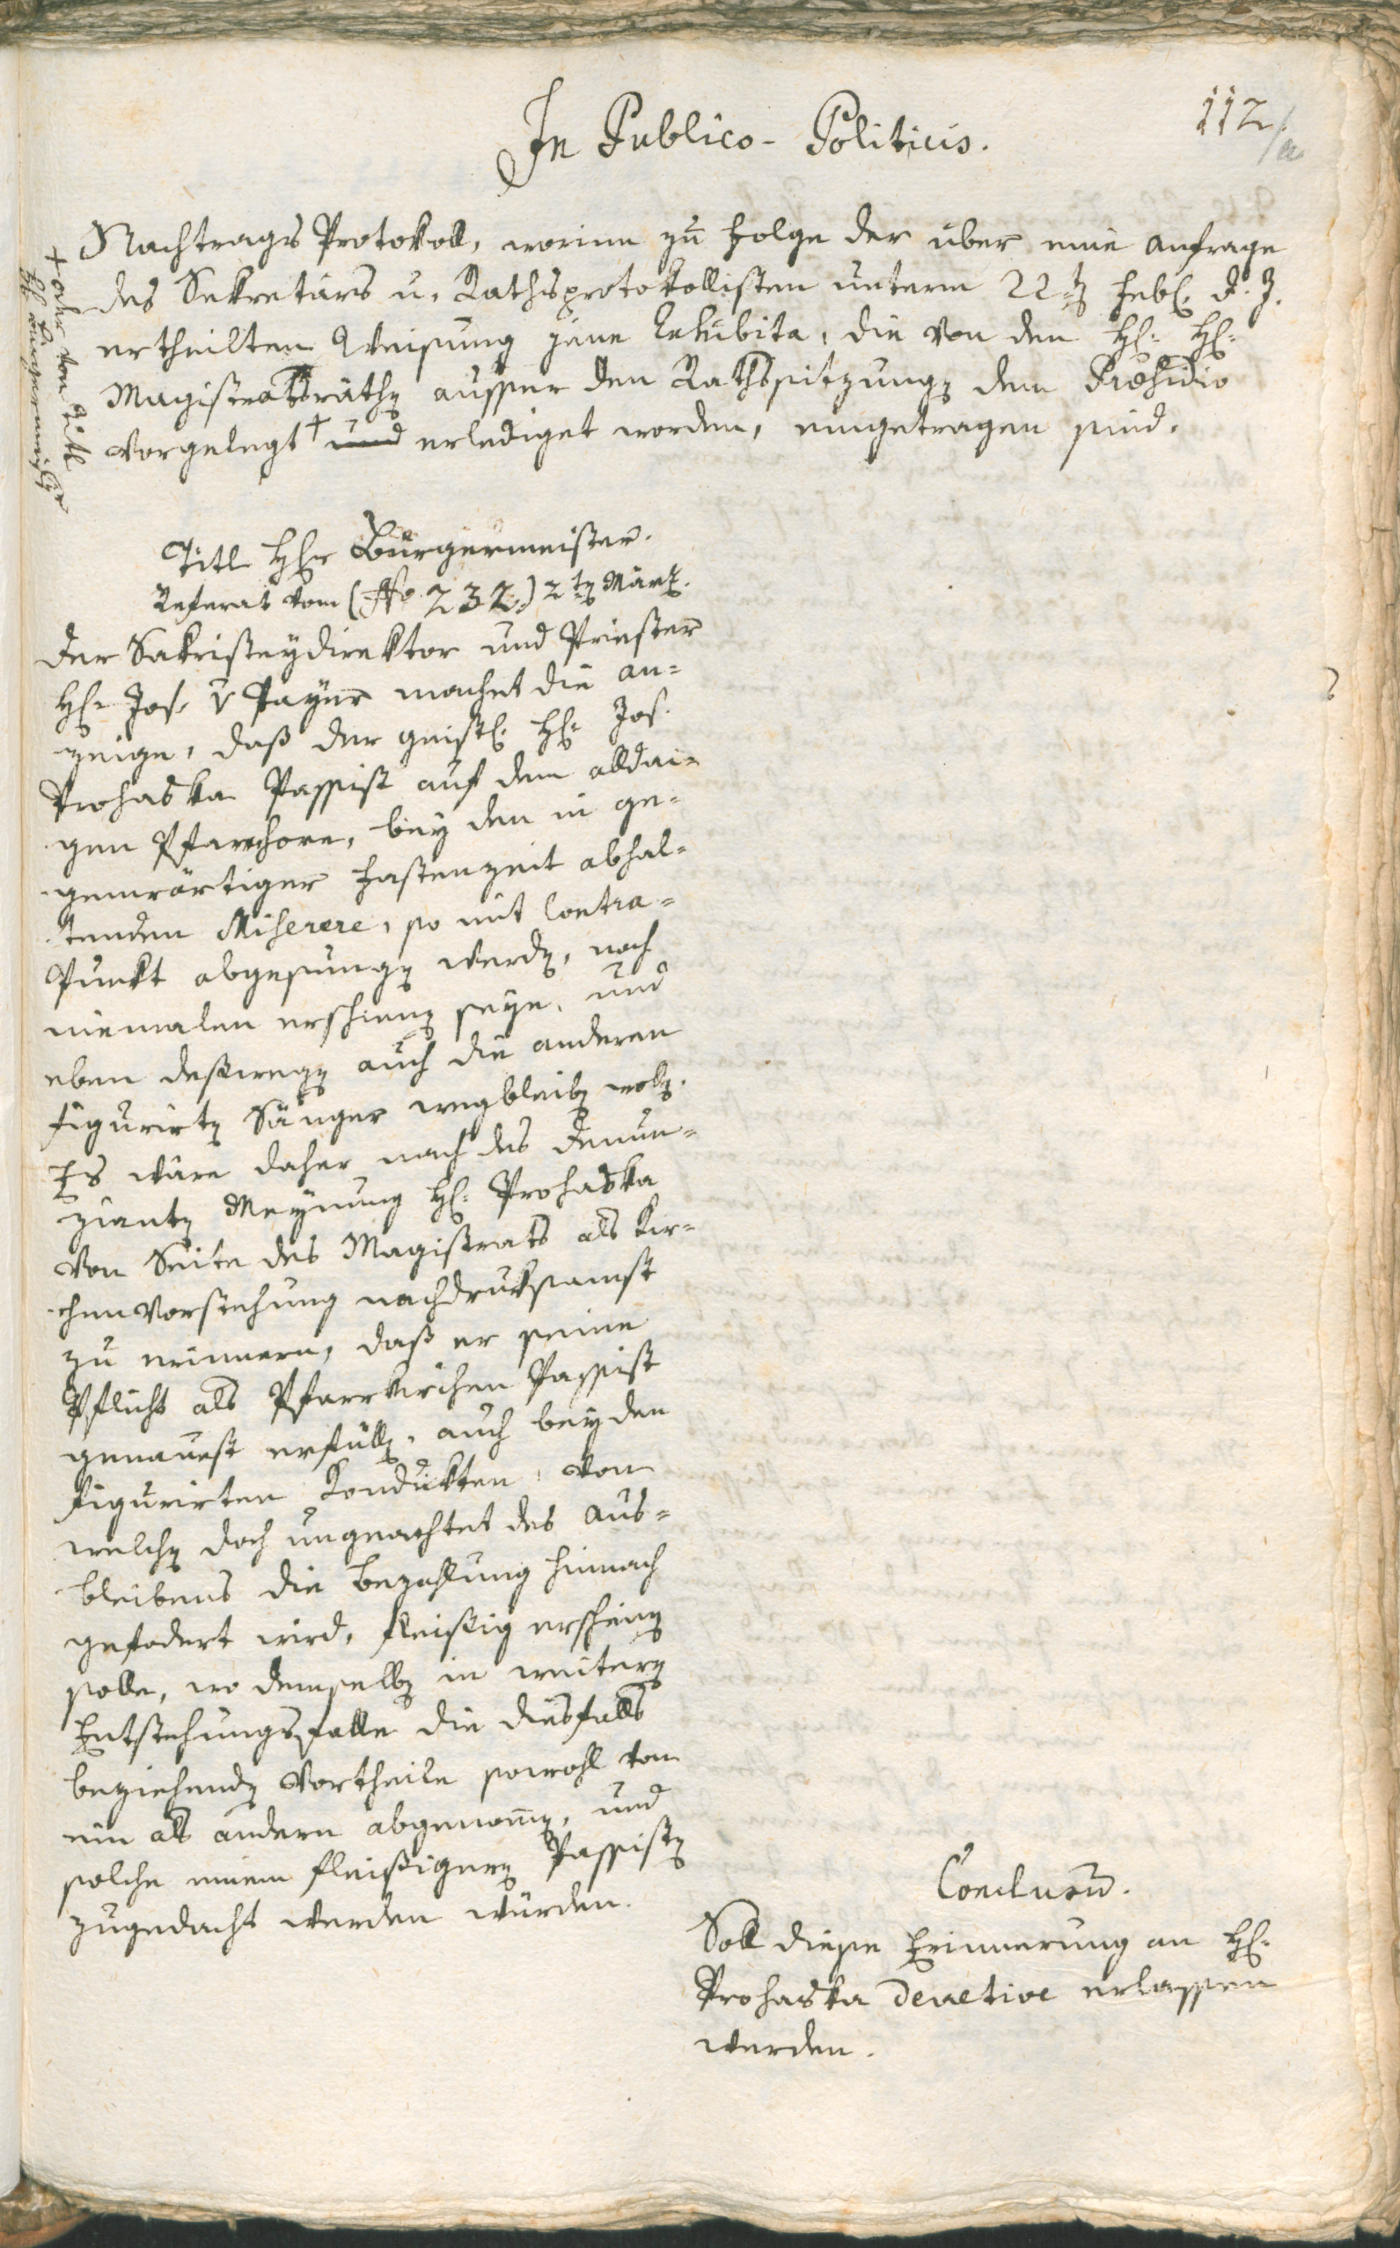 112/a
In Publico-Politicis.
Nachtrags Protokoll, worinn zu Folge der über eine Anfrage
des Sekretärs u. Rathsprotokollisten unterm 22ten Febr. d. J.
ertheilten Weisung jene Exhibita, die von den H. H.
Magistratsräthen ausser den Rathssitzungen dem Præsidio
vorgelegt + und erlediget worden, eingetragen sind.
+ oder von Titl
H. Bürgermeister
Titl Herr Bürgermeister.
Referat vom (No. 232.) 2ten März.
Der Sakristeydirektor und Priester
Hr. Jos. v Payer machet die An-
zeige, daß der geistl. Hr. Jos.
Prohaska Bassist auf dem alldai-
gen Pfarrchore, bey den in ge-
genwärtiger Fastenzeit abhal-
tenden Miserere, so mit Contra-
Punkt abgesungen werden, noch
niemalen erschienen seye, und
eben deßwegen auch die anderen
figurirten Sänger wegbleiben wollen.
Es wäre daher nach des Denun-
zianten Meynung H. Prohaska
von Seite des Magistrats als Kir-
chenvorstehung nachdruksamst
zu erinnern, daß er seine
Pflicht als Pfarrkirchen Bassist
genauest erfüllen, auch bey den
figurirten Kondukten, von
welchen doch ungeachtet des Aus-
bleibens die Bezahlung hinnach
gefodert wird, fleißig erscheinen
solle, wo demselben in weiteren
Entstehungsfalle die diesfalls
beziehenden Vortheile sowohl vom
ein als andern abgenommen, und
solche einem fleißigeren Bassisten
zugedacht werden würden.
Conclusum.
Soll diese Erinnerung an H.
Prohaska decretive erlassen
werden.